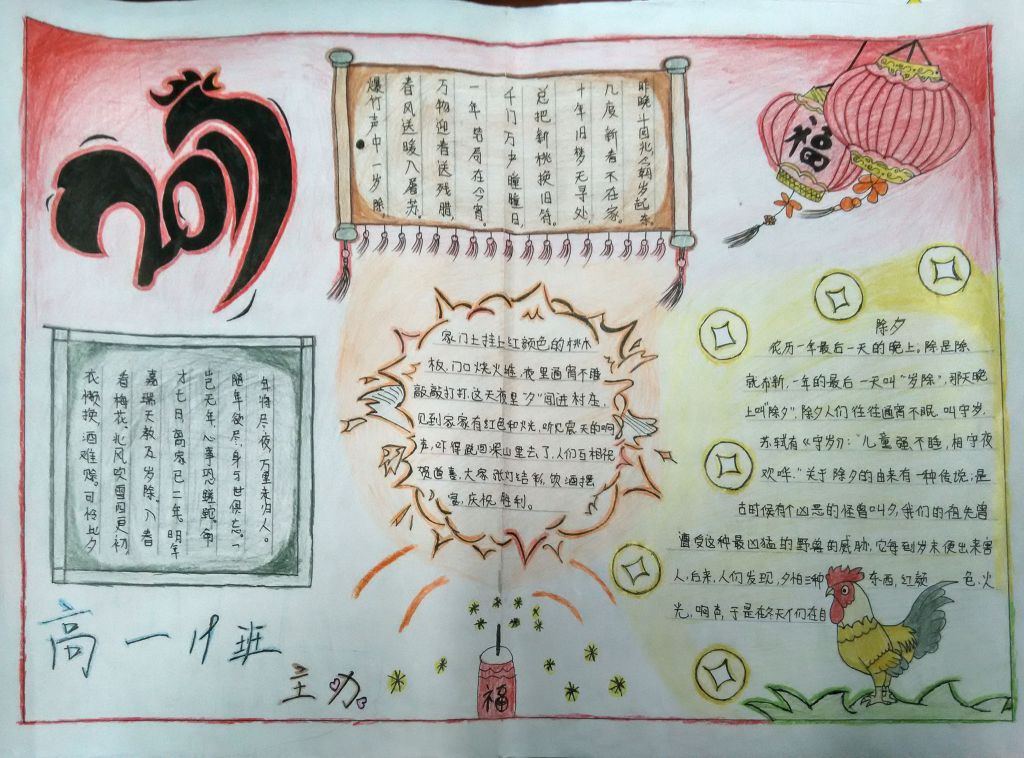 2017
昨晚斗回北
岁起东
几度新春不在家
千年旧梦无寻处
总把新桃换旧符。
千门万户曈曈日,
一年结局在今宵。
万物迎春送残腊
春风送暖入屠苏。
爆竹声中一岁除,
福
年将尽,夜,万里未归人。
随年欲尽,身与世俱忘。一
岂无年,心事恐蹉跎。
才七日,离家已二年。明年
嘉瑞天教及岁除。入春
看梅花,北风吹雪四更初
衣懒换,酒难赊。可怜此夕
家门上挂上红颜色的桃木
板,门口烧火堆,夜里通宵不睡
敲敲打打.这天夜里"夕"闯进村庄,
见到家家有红色和火光,听见震天的响
声,吓得跑回深山里去了,人们互相祝
贺道喜,大家张灯结彩,饮酒摆
宴,庆祝胜利。
除夕
农历一年最后一天的晚上。除是除
就布新,一年的最后一天叫"岁除",那天晚
上叫"除夕".除夕人们往往通宵不眠,叫守岁,
苏轼有《守岁》:"儿童强不睡,相守夜
欢哗."关于除夕的由来有一种传说:是
古时候有个凶恶的怪兽叫夕,我们的祖先曾
遭受这种最凶猛的野兽的威胁,它每到岁末便出来害
人,后来,人们发现,夕怕三种东西,红颜色,火
光,响声,于是在冬天人们在自
高一 班
主办
福